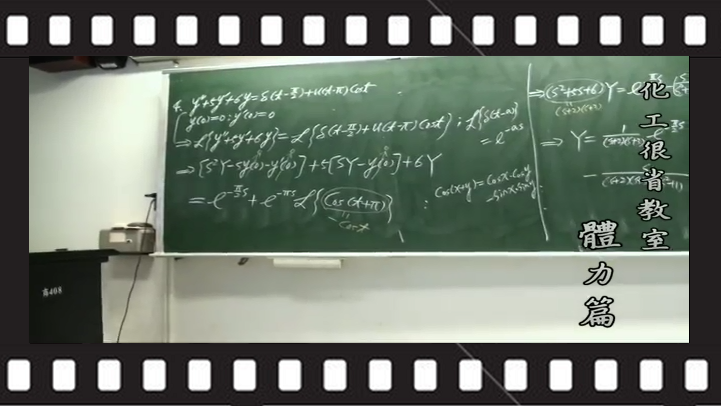 4. y''+5y'+6y=δ(t-π/2)+u(t-π)Cost
y(0)=0; y'(0)=0
⇒ L{y''+5y'+6y}=L{δ(t-π/2)+u(t-π)Cost} ; L{δ(t-a)}
= e^-as
⇒ [s²Y-sy(0)-y'(0)]+5[sY-y(0)]+6Y
= e^-π/2 s + e^-πs L{Cos(t+π)}
-Cost
Cos(x+y)=Cosx·Cosy
-Sinx·Siny
⇒ (s²+5s+6)Y=e
(s+2)(s+3)
⇒ Y= 1/(s+2)(s+3) e
化工很省教室
體力篇
高408